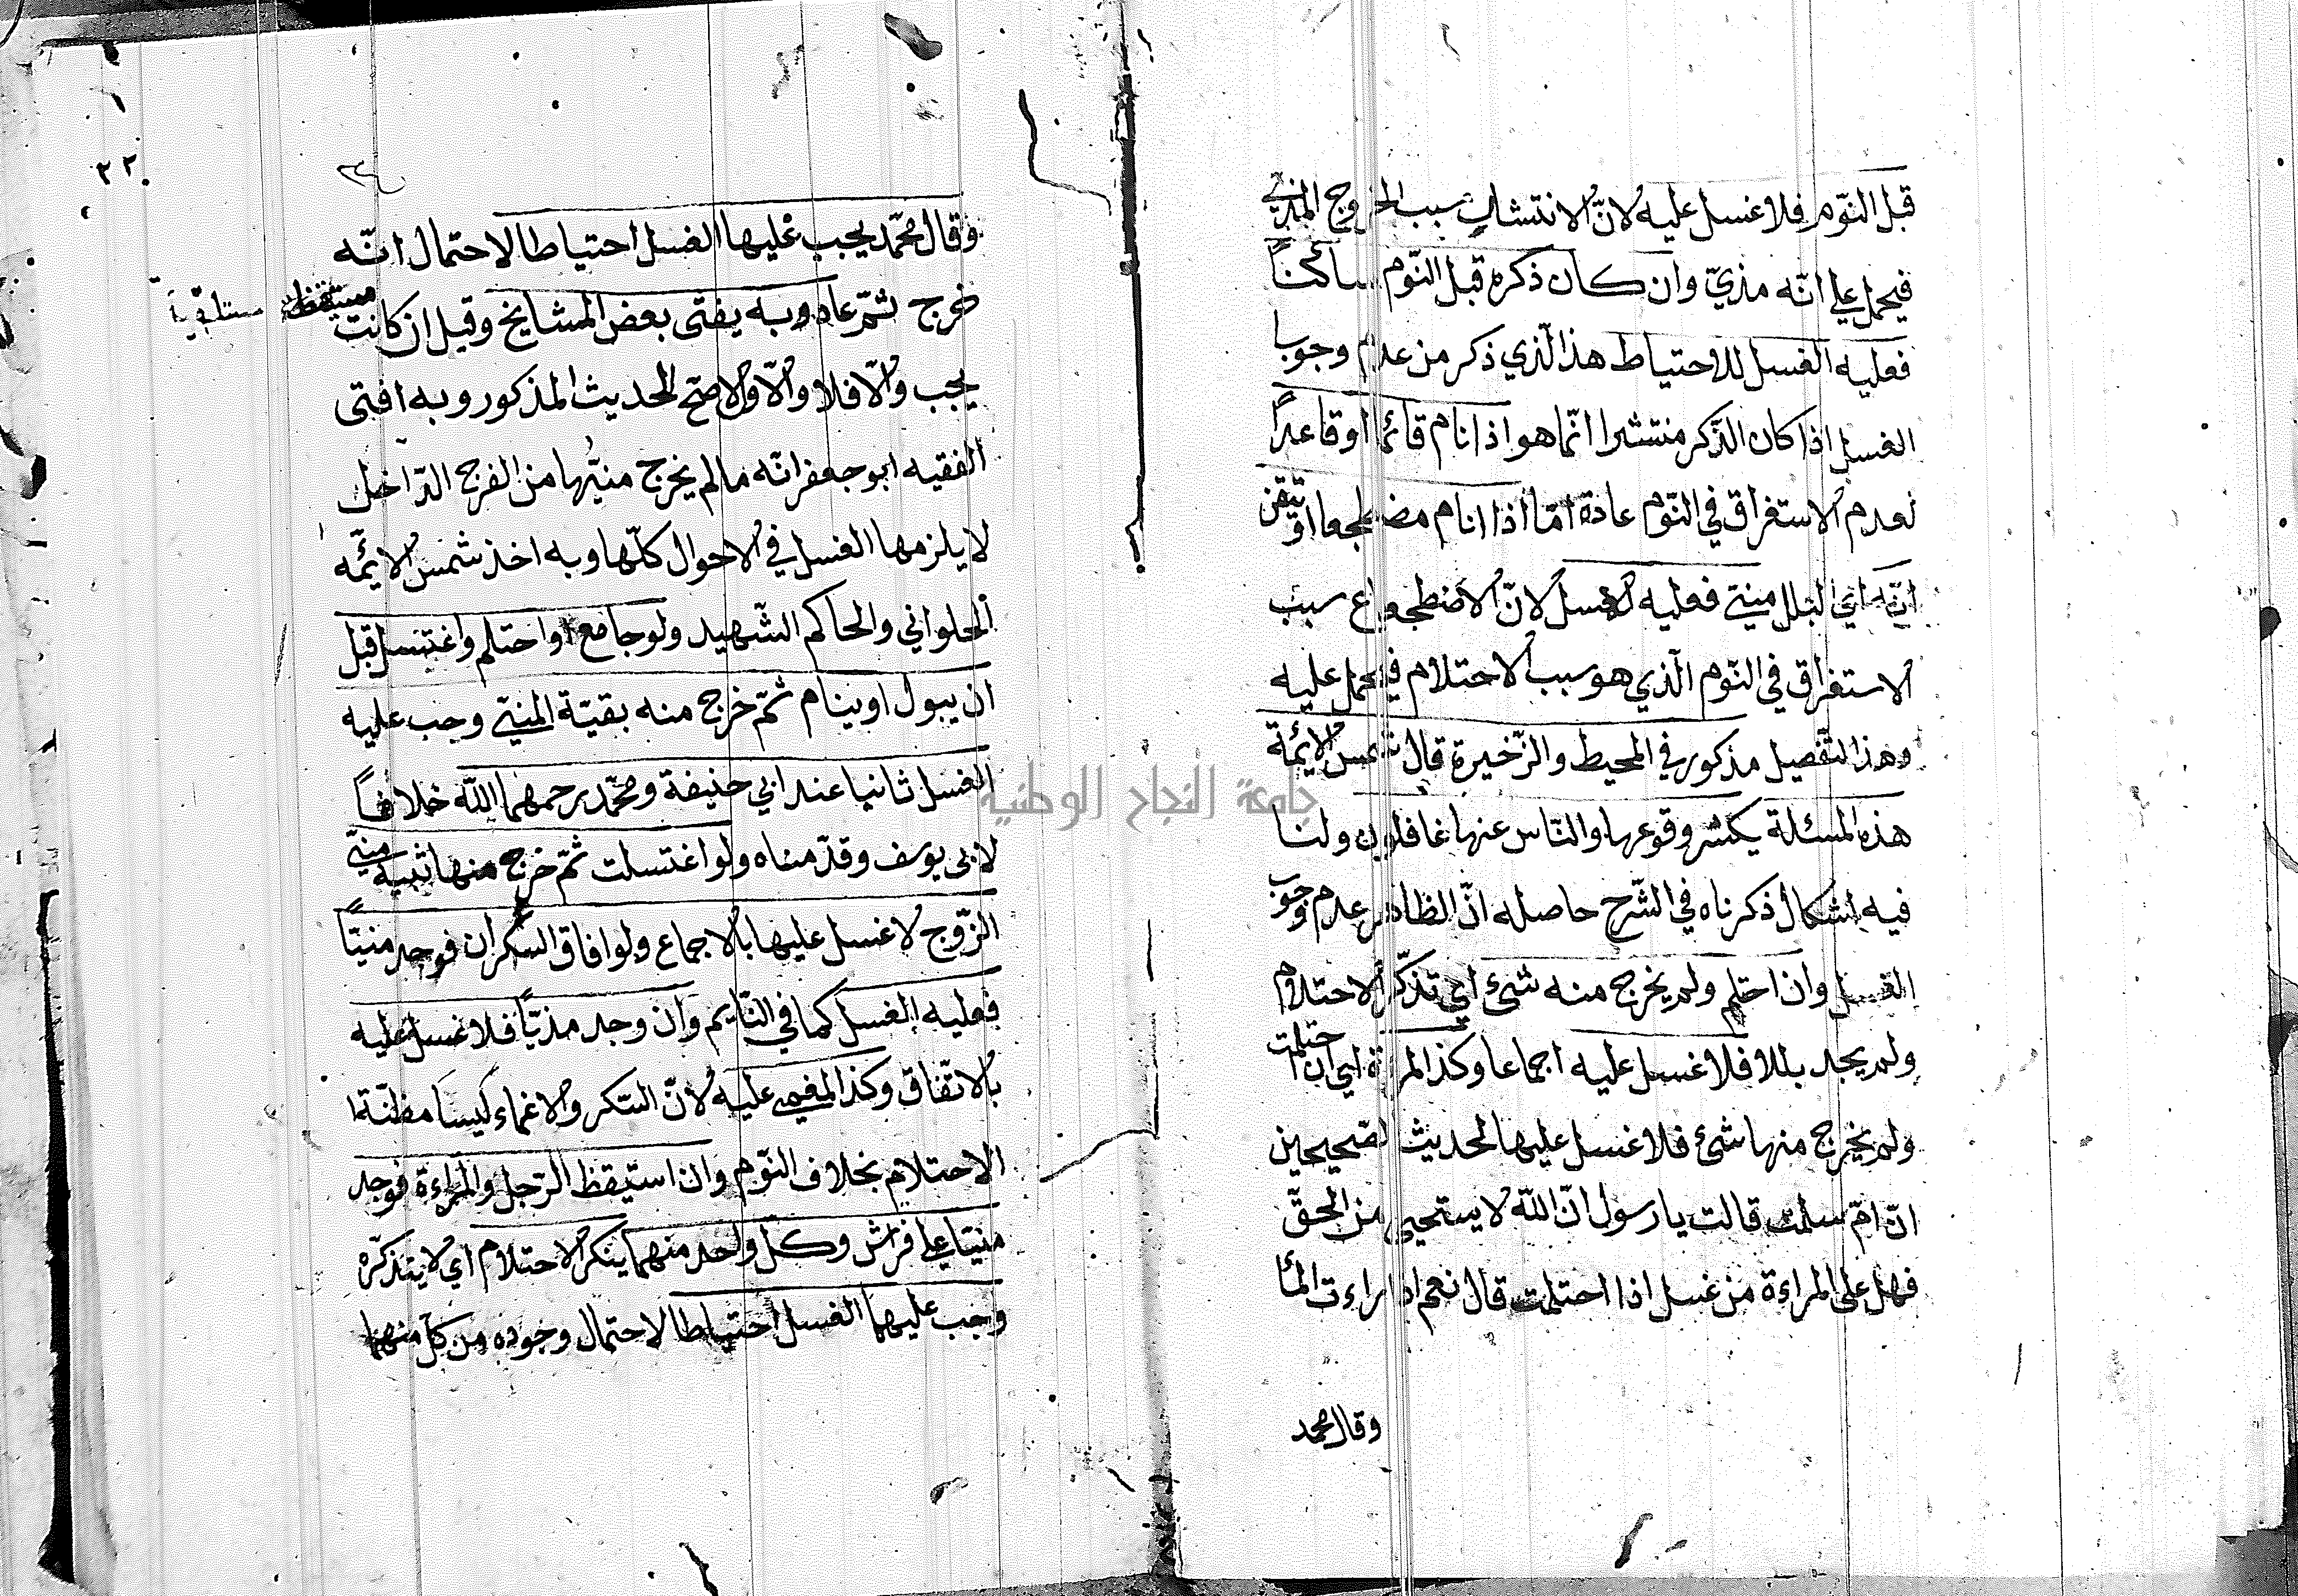 قبل النّوم فلا غسل عليه لانّ الانتشار سبب الخروج المذيّ
فيحمل على انّه مذيّ وان كان ذكره قبل النّوم ساكناً
فعليه الغسل للاحتياط هذا الّذي ذكر من عدم وجوب
الغسل اذا كان الذّكر منتشرا انّما هو اذا نام قائما او قاعداً
لعدم الاستغراق في النّوم عادة امّا اذا نام مضطجعا او تيقّن
انّه اي البلل منيّ فعليه الغسل لانّ الاضطجاع سبب
الاستغراق في النّوم الّذي هو سبب الاحتلام فيحمل عليه
وهذا التّفصيل مذكور في المحيط والذّخيرة قال شمس الائمّة
هذه المسئلة يكثر وقوعها والنّاس عنها غافلون ولنا
فيه اشكال ذكرناه في الشّرح حاصله انّ الظاهر عدم وجوب
الغسل وان احتلم ولم يخرج منه شئ اي تذكّر الاحتلام
ولم يجد بللا فلا غسل عليه اجماعا وكذا المرءة اي ان احتلمت
ولم يخرج منها شئ فلا غسل عليها لحديث الصّحيحين
انّ امّ سلمت قالت يا رسول انّ اللّه لا يستحيى من الحقّ
فهل على المراءة من غسل اذا احتلمت قال نعم اذا راءت المأ
وقال محمد
٢٢
وقال محمّد يجب عليها الغسل احتياطا لاحتمال انّه
خرج ثمّ عاد وبه يفتى بعض المشايخ وقيل ان كانت مستيقظ مستلقياً
يجب والّا فلا والاّوّل الاصحّ لحديث المذكور وبه افتى
الفقيه ابو جعفر انّه ما لم يخرج منيّها من الفرج الدّاخل
لا يلزمها الغسل في الاحوال كلّها وبه اخذ شمس الايمّه
الحلواني والحاكم الشّهيد ولو جامع او احتلم واغتسل قبل
ان يبول او ينام ثمّ خرج منه بقيّة المنيّ وجب عليه
الغسل ثانيا عند ابي حنيفة ومحمّد رحمهما اللّه خلافاً
لابى يوسف وقدّمناه ولو اغتسلت ثمّ خرج منها منيّ
الزّوج لا غسل عليها بالاجماع ولو افاق السّكران فوجد منيّاً
فعليه الغسل كما في النّايم وان وجد مذيّاً فلا غسل عليه
بالاتّفاق وكذا المغمى عليه لانّ السّكر والاغماء ليسا مظنّة
الاحتلام بخلاف النّوم وان استيقظ الرّجل والمراءة فوجد
منيّا على فراش وكلّ واحد منهما ينكر الاحتلام اي لا يتذكّره
وجب عليهما الغسل احتياطا لاحتمال وجوده من كلّ منهما
جامعة النجاح الوطنية